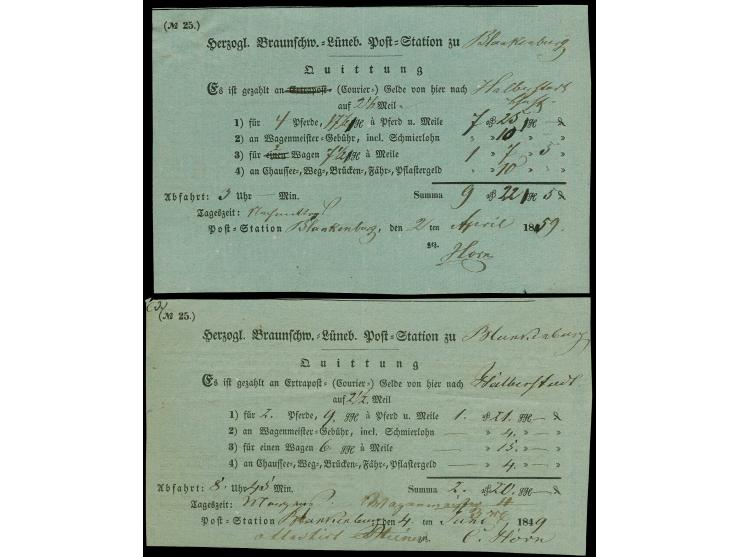 (№ 25.)
Herzogl. Braunschw.=Lüneb. Post=Station zu Blankenburg
Quittung
Es ist gezahlt an Extrapost= (Courier=) Gelde von hier nach Halberstadt
auf 2½ Meil
1) für 4 Pferde, 17½ à Pferd u. Meile 7 25
2) an Wagenmeister=Gebühr, incl. Schmierlohn " 10 " "
3) für einen Wagen 7½ à Meile 1 7 5
4) an Chaussee=, Weg=, Brücken=, Fähr=, Pflastergeld " 10 " "
Abfahrt: 3 Uhr — Min. Summa 9 22 5
Tageszeit: Nachmittag
Post=Station Blankenburg, den 2 ten April 1859.
gez.
Horn
(№ 25.)
Herzogl. Braunschw.=Lüneb. Post=Station zu Blankenburg
Quittung
Es ist gezahlt an Extrapost= (Courier=) Gelde von hier nach Halberstadt
auf 2½ Meil
1) für 2. Pferde, 9. à Pferd u. Meile 1. 21. —
2) an Wagenmeister=Gebühr, incl. Schmierlohn — " 4. " — "
3) für einen Wagen 6 à Meile — " 15. " — "
4) an Chaussee=, Weg=, Brücken=, Fähr=, Pflastergeld — " 4. " — "
Abfahrt: 8 Uhr 45 Min. Summa 2. 20. —
Tageszeit: Morgens Wagenmeister
Post=Station Blankenburg den 4 ten Juni 1849
C. Horn